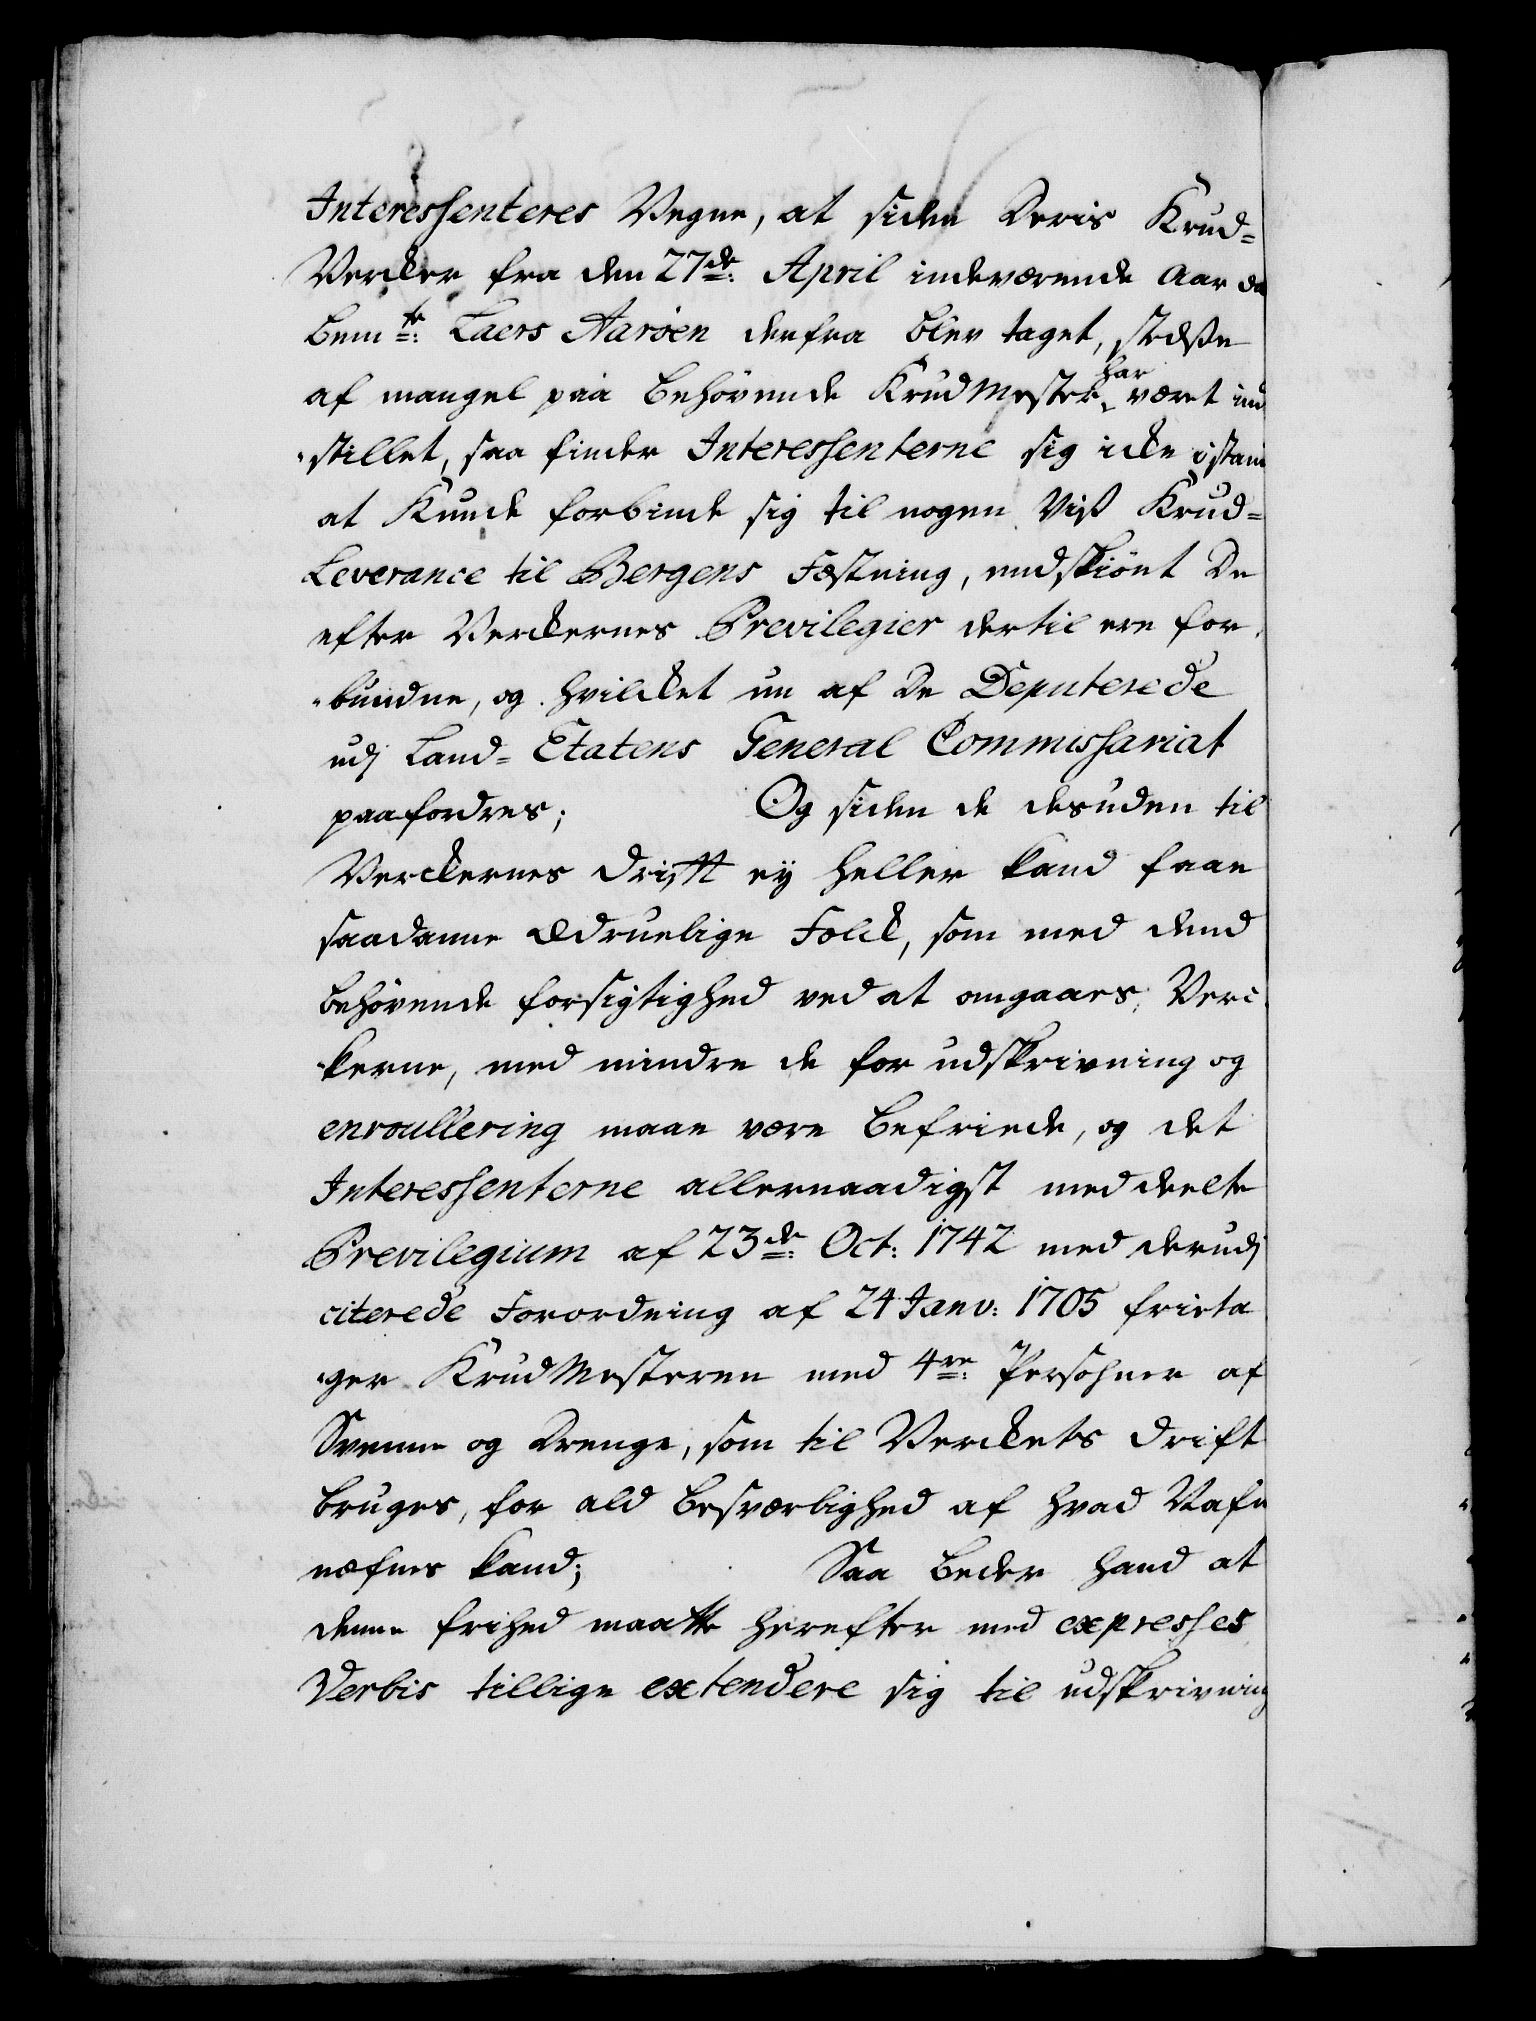 Interessenteres Vegne, at siden Deris Krud-
Vercker fra den 27de: April indeværende Aar da
bemte: Laers Aarøen derfra blev taget, stedsse
af mangel paa behøvende KrudMester har været ind
stillet, saa finder Interessenterne sig icke i stand
at kunde forbinde sig til nogen viss Krud-
Leverance til Bergens Fæstning, endskiønt De
efter Verckernes Previlegier dertil ere for-
bundne, og hvilcket nu af De Deputerede
udj Land-Etatens General Commissariat
paafordres; Og siden de desuden til
Verckernes drifft ey heller kand faae
saadanne ædruelige Folck, som med dend
behøvende forsigtighed ved at omgaaes Verc-
kerne, med mindre de for udskrivning og
enroullering maae være befriede, og det
Interessenterne allernaadigst meddeelte
Previlegium af 23de: Oct: 1742 med derudj
citerede Forordning af 24 Janv: 1705 frieta
ger KrudMesteren med 4re: Persohner af
Svenne og Drenge, som til Verckets drift
bruges, for ald besværlighed af hvad Nafn
næfnes kand; Saa beder hand at
denne frihed maatte herefter med expresses
Verbis tillige extendere sig til udskrivning